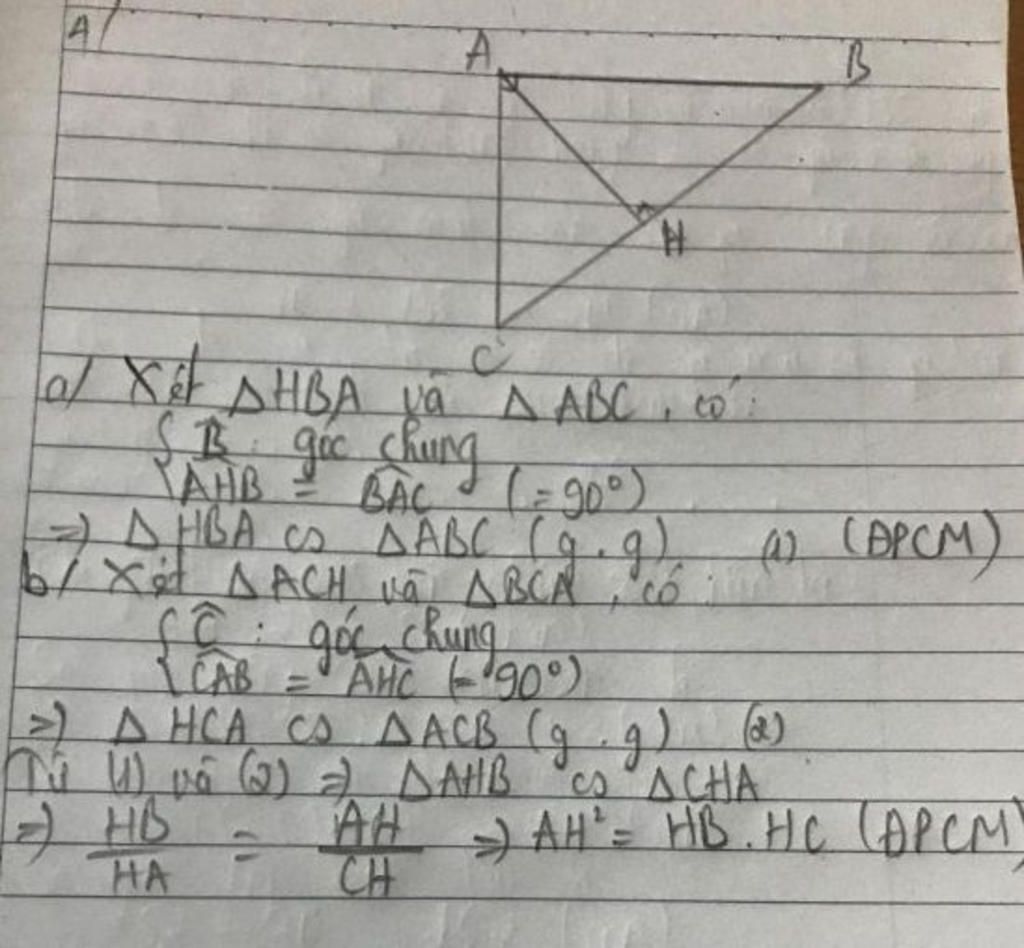 4/
A
B
H
C
a/ Xét ΔHBA và ΔABC, có:
{ B̂ : góc chung
AHB̂ = BAĈ (= 90°)
=> ΔHBA ∽ ΔABC (g.g) (1) (ĐPCM)
b/ Xét ΔACH và ΔBCA, có:
{ Ĉ : góc chung
CAB̂ = AHĈ (= 90°)
=> ΔHCA ∽ ΔACB (g.g) (2)
Từ (1) và (2) => ΔAHB ∽ ΔCHA
=> HB/HA = AH/CH => AH² = HB.HC (ĐPCM)